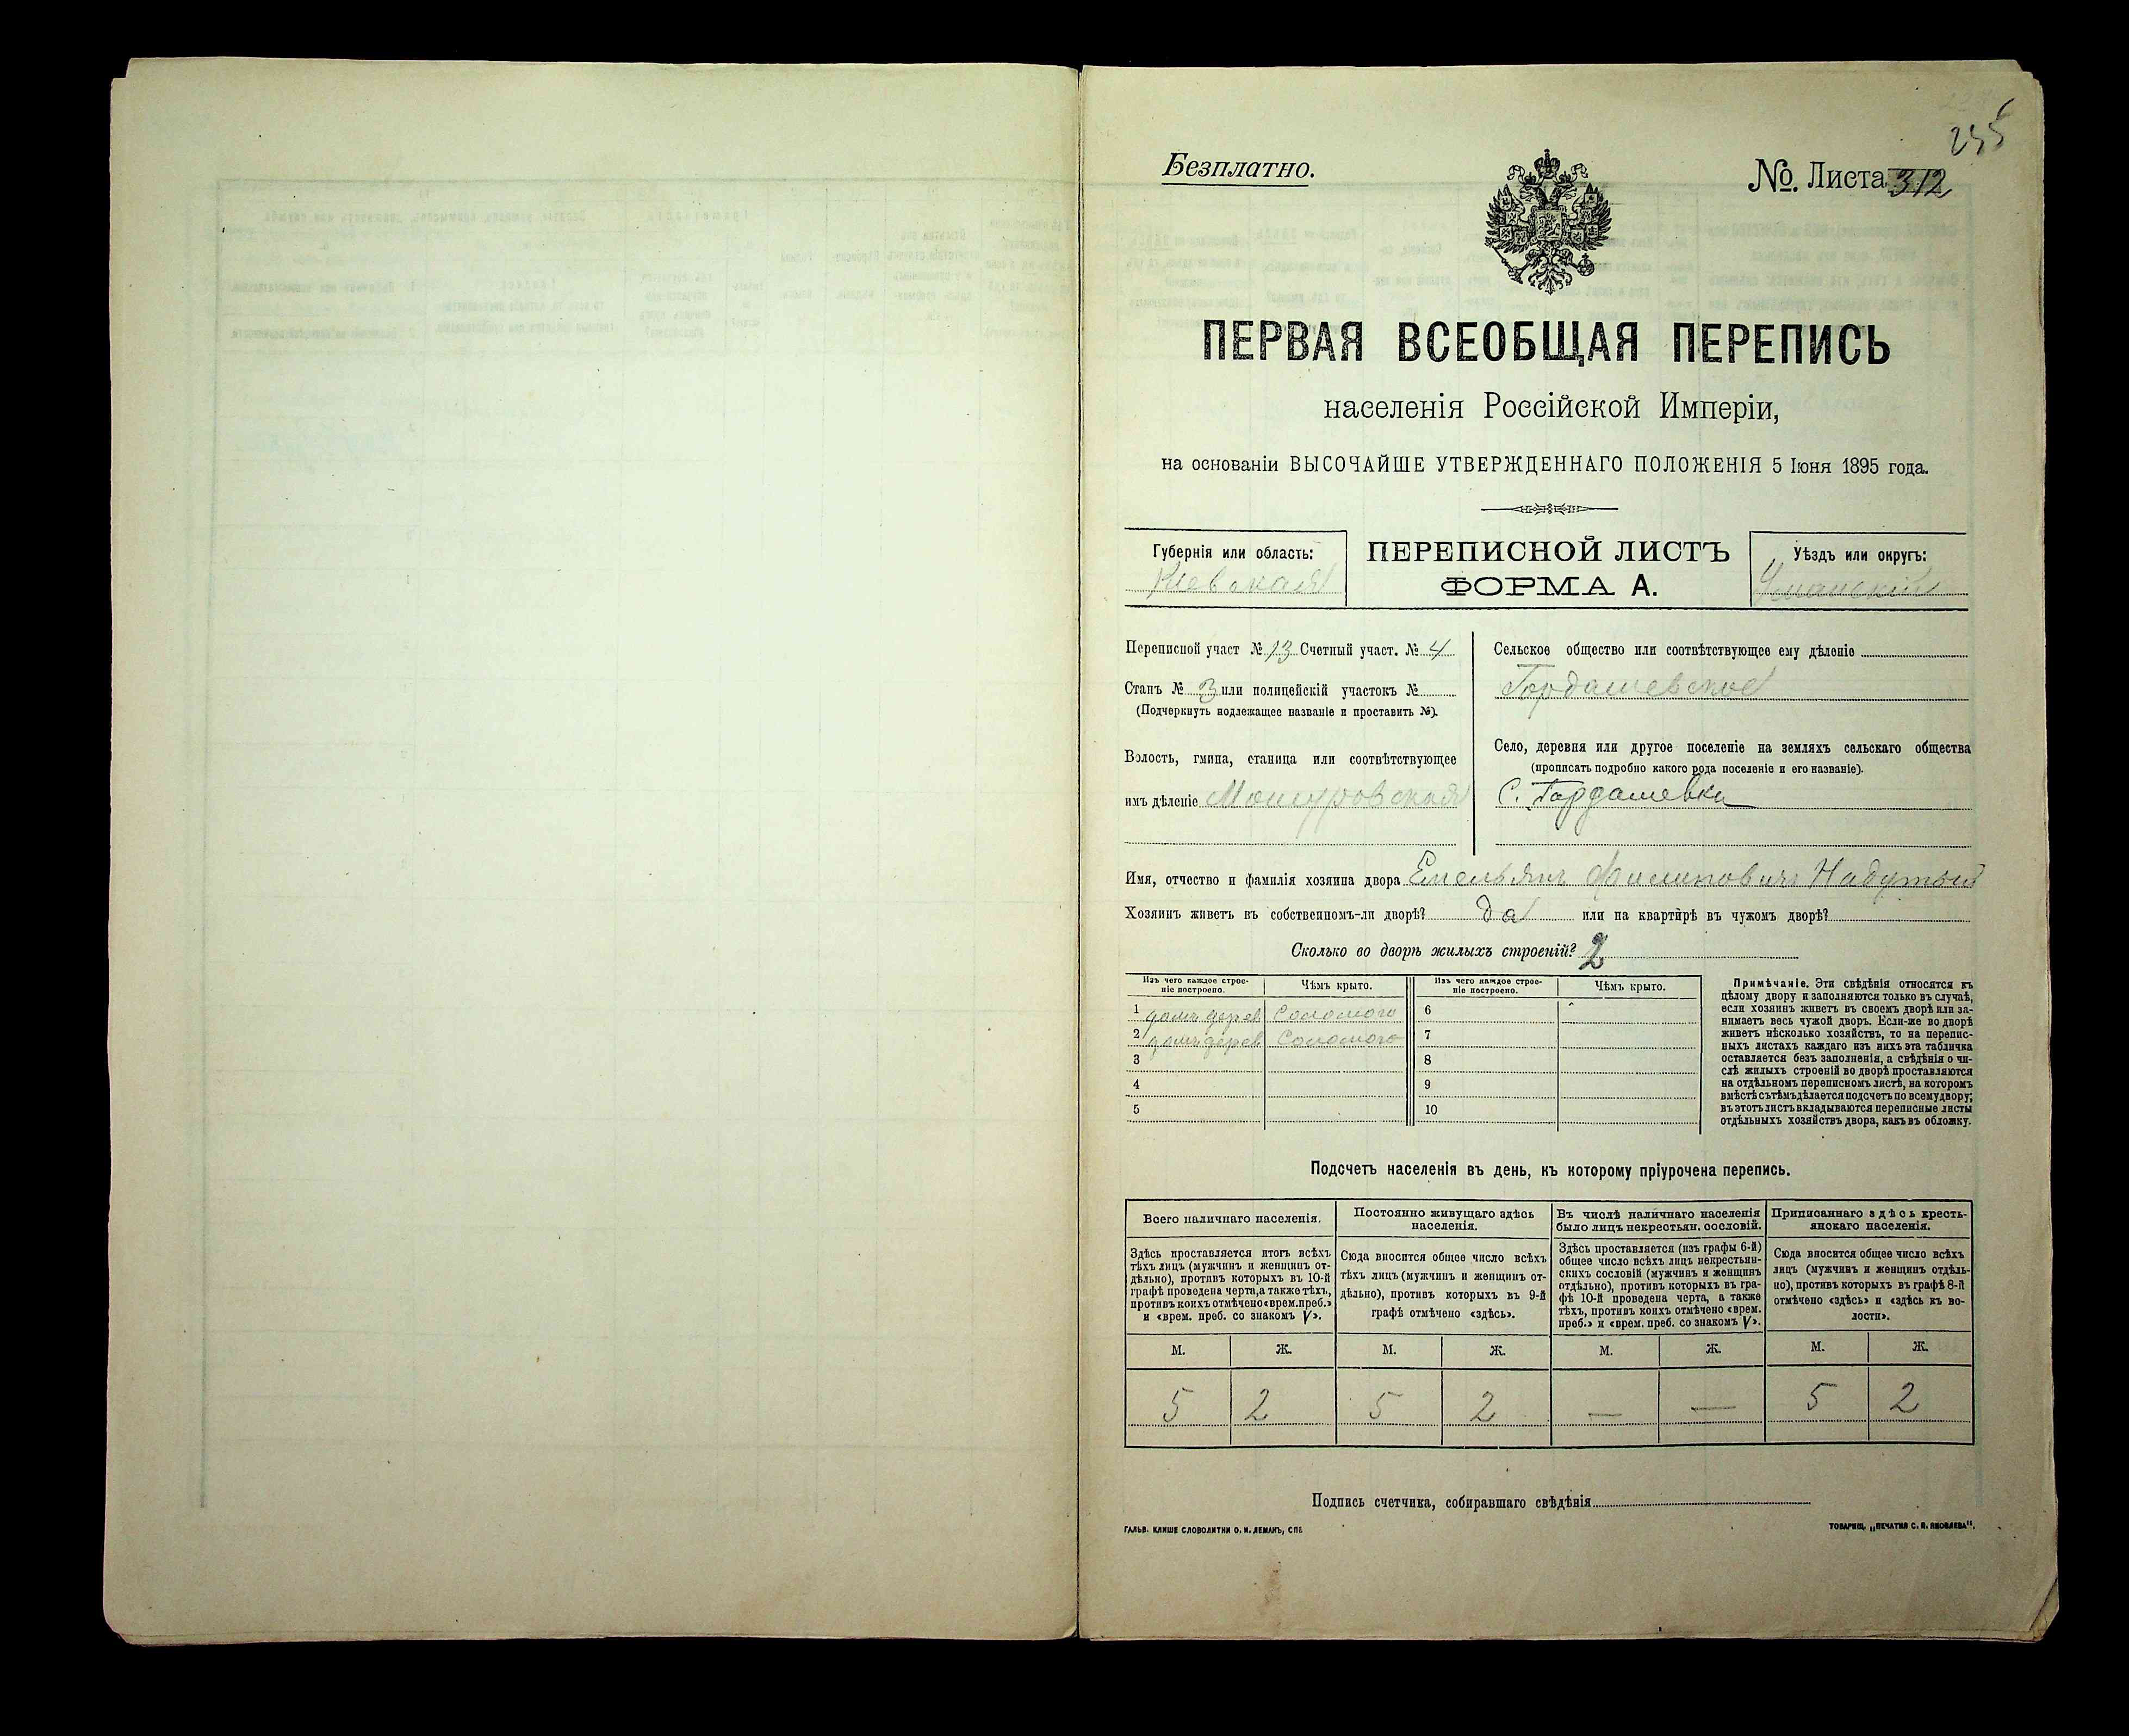 235
Безплатно.
№. Листа 312
ПЕРВАЯ ВСЕОБЩАЯ ПЕРЕПИСЬ
населенія Россійской Имперіи,
на основаніи ВЫСОЧАЙШЕ УТВЕРЖДЕННАГО ПОЛОЖЕНІЯ 5 Іюня 1895 года.
Губернія или область:
Кіевская
ПЕРЕПИСНОЙ ЛИСТЪ
ФОРМА А.
Уѣздъ или округъ:
Уманскій
Переписной участ № 13 Счетный участ. № 4
Станъ № 3 или полицейскій участокъ №
(Подчеркнуть подлежащее названіе и проставить №).
Волость, гмина, станица или соотвѣтствующее
имъ дѣленіе Мошуровская
Сельское общество или соотвѣтствующее ему дѣленіе
Гордашевское
Село, деревня или другое поселеніе на земляхъ сельскаго общества
(прописать подробно какого рода поселеніе и его названіе).
С. Гордашевка
Имя, отчество и фамилія хозяина двора Емельянъ Филиповичъ Надутый
Хозяинъ живетъ въ собственномъ-ли дворѣ? да или на квартирѣ въ чужомъ дворѣ?
Сколько во дворѣ жилыхъ строеній? 2
Изъ чего каждое строе-
ніе построено.
Чѣмъ крыто.
Изъ чего каждое строе-
ніе построено.
Чѣмъ крыто.
1 домъ дерев Соломою 6
2 домъ дерев Соломою 7
3 8
4 9
5 10
Примѣчаніе. Эти свѣдѣнія относятся къ
цѣлому двору и заполняются только въ случаѣ,
если хозяинъ живетъ въ своемъ дворѣ или за-
нимаетъ весь чужой дворъ. Если-же во дворѣ
живетъ нѣсколько хозяйствъ, то на перепис-
ныхъ листахъ каждаго изъ нихъ эта табличка
оставляется безъ заполненія, а свѣдѣнія о чи-
слѣ жилыхъ строеній во дворѣ проставляются
на отдѣльномъ переписномъ листѣ, на которомъ
вмѣстѣ съ тѣмъ дѣлается подсчетъ по всему двору;
въ этотъ листъ вкладываются переписные листы
отдѣльныхъ хозяйствъ двора, какъ въ обложку.
Подсчетъ населенія въ день, къ которому пріурочена перепись.
Всего наличнаго населенія.
Здѣсь проставляется итогъ всѣхъ
тѣхъ лицъ (мужчинъ и женщинъ от-
дѣльно), противъ которыхъ въ 10-й
графѣ проведена черта, а также тѣхъ,
противъ коихъ отмѣчено «врем. преб.»
и «врем. преб. со знакомъ V».
Постоянно живущаго здѣсь
населенія.
Сюда вносится общее число всѣхъ
тѣхъ лицъ (мужчинъ и женщинъ от-
дѣльно), противъ которыхъ въ 9-й
графѣ отмѣчено «здѣсь».
Въ числѣ наличнаго населенія
было лицъ некрестьян. сословій.
Здѣсь проставляется (изъ графы 6-й)
общее число всѣхъ лицъ некрестьян-
скихъ сословій (мужчинъ и женщинъ
отдѣльно), противъ которыхъ въ гра-
фѣ 10-й проведена черта, а также
тѣхъ, противъ коихъ отмѣчено «врем.
преб.» и «врем. преб. со знакомъ V».
Приписаннаго здѣсь кресть-
янскаго населенія.
Сюда вносится общее число всѣхъ
лицъ (мужчинъ и женщинъ отдѣль-
но), противъ которыхъ въ графѣ 8-й
отмѣчено «здѣсь» и «здѣсь къ во-
лости».
М. Ж. М. Ж. М. Ж. М. Ж.
5 2 5 2 — — 5 2
Подпись счетчика, собиравшаго свѣдѣнія
ГАЛЬВ. КЛИШЕ СЛОВОЛИТНИ О. И. ЛЕМАНЪ, СПБ
ТОВАРИЩ. „ПЕЧАТНЯ С. П. ЯКОВЛЕВА".